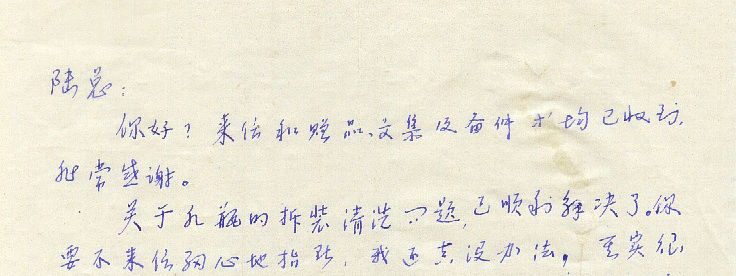 陆总:
你好?来信和赠品、文集及备件才均已收到,
非常感谢。
关于孔瓶的拆装清洗问题,已顺利解决了。你
要不来信细心地指点,我还真没办法。至实很